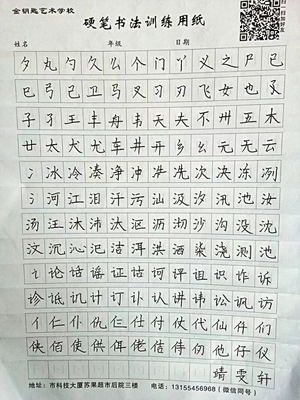 金钥匙艺术学校
硬笔书法训练用纸
扫一扫加好友
姓名 年级 日期
夕丸勺久么个门丫义之尸已
巳弓己卫马叉刃刃飞女也
子孑王丰舟韦天夫不卅五木
廿太犬尤车井开乡幺元无云
冫冰冷凑净冲冼次决冻冽
氵河江泪汗污汕汲汐汛池汝
汤汪沐沛汰沤沥沏沙沟没沈
汶沉沁汜洁洱洪洒染浇测池
讠论话谣证诂诃评诅识诈诉
诊诋讥计订讣认讲讳讼讽访
亻仁仆仇三仕付仗代仙仟们
侠佰使供佴佬佶侍伤他仔仪
靖雯轩
地址：市科技大厦苏果超市后院三楼 电话：13155456968（微信同号）